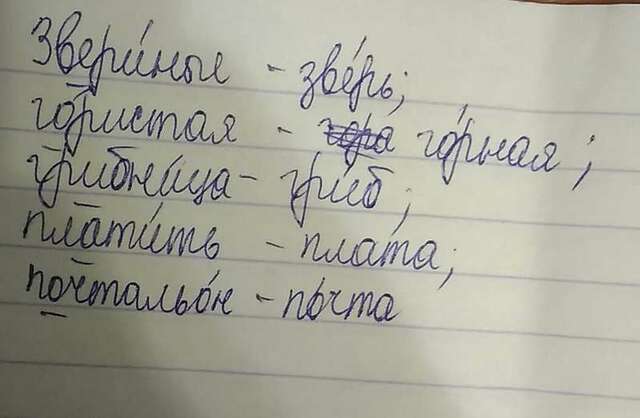 Звери́ные - зве́рь;
гористая - гора го́рная;
грибни́ца - гри́б;
плати́ть - пла́та;
почтальо́н - по́чта